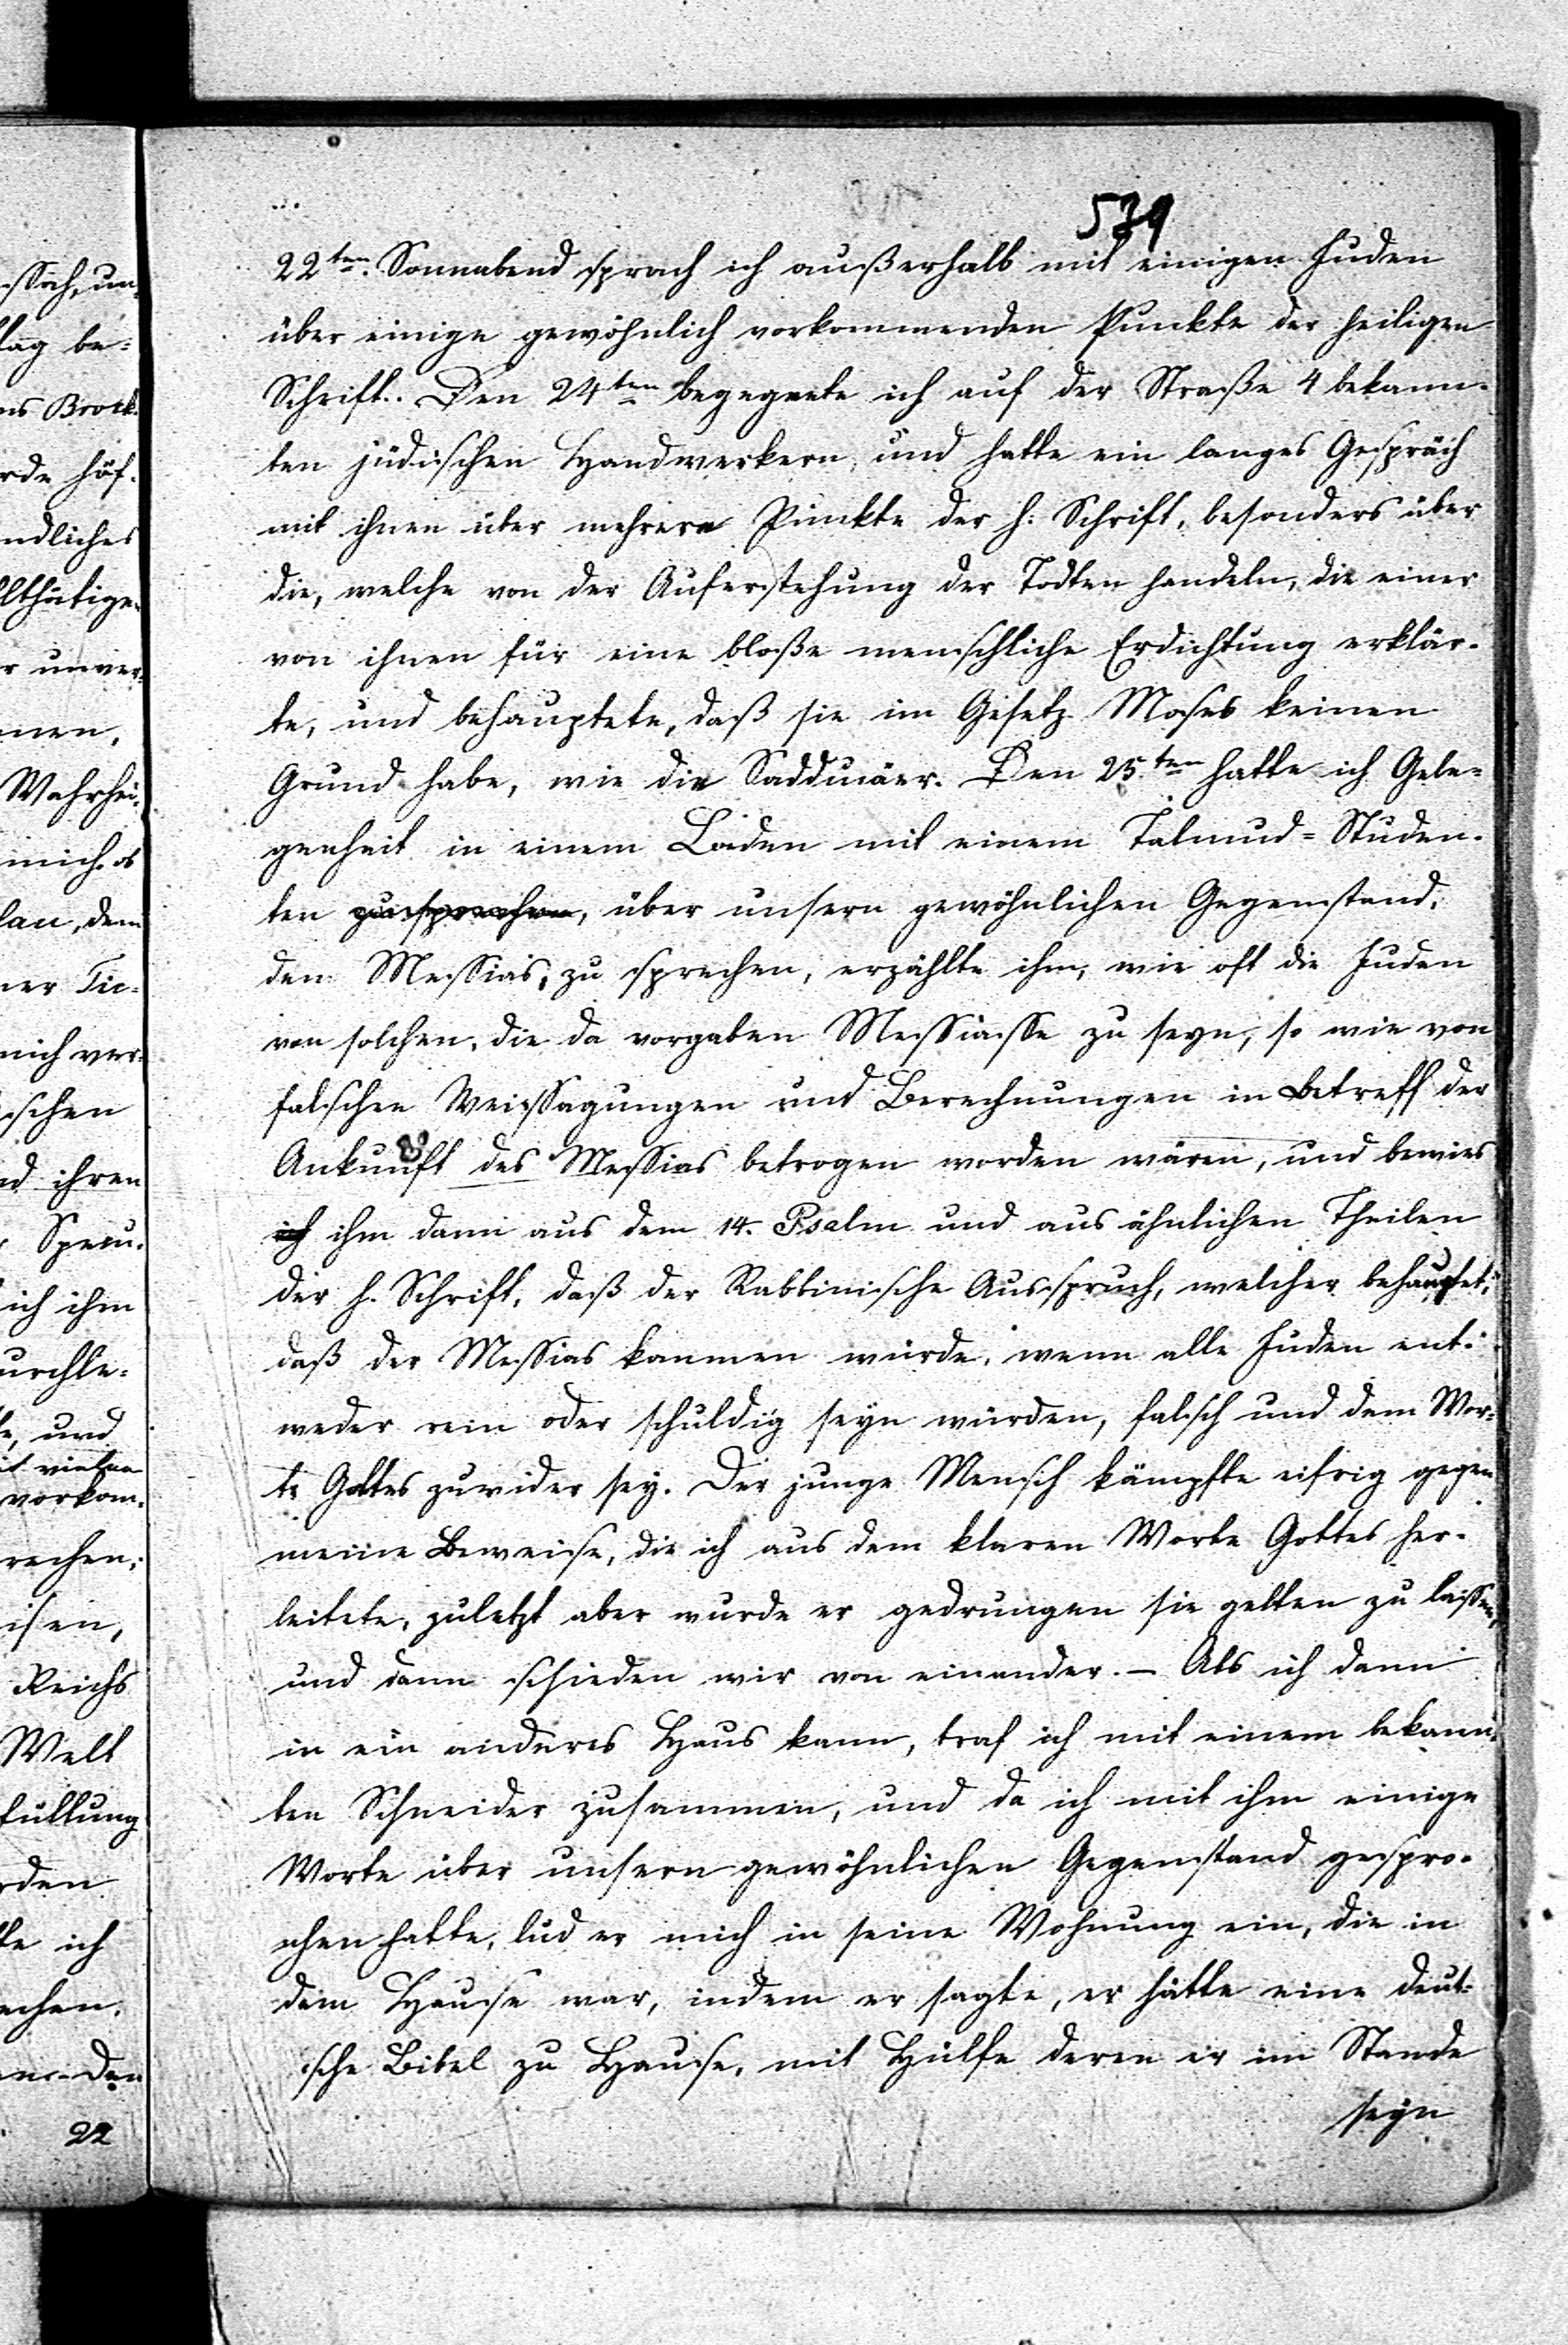 539
22ten. Sonnabend sprach ich außerhalb mit einigen Juden
über einige gewöhnlich vorkommenden Punkte der heiligen
Schrift. Den 24ten begegnete ich auf der Straße 4 bekann-
ten jüdischen Handwerkern, und hatte ein langes Gespräch
mit ihnen über mehrere Punkte der h. Schrift, besonders über
die, welche von der Auferstehung der Todten handeln, die einer
von ihnen für eine bloße menschliche Erdichtung erklär-
te, und behauptete, daß sie im Gesetz Moses keinen
Grund habe, wie die Sadducäer. Den 25.ten hatte ich Gele-
genheit in einem Laden mit einem Talmud-Studen-
ten zu sprechen, über unsern gewöhnlichen Gegenstand,
den Messias, zu sprechen, erzählte ihm, wie oft die Juden
von solchen, die da vorgaben Messiasse zu seyn, so wie von
falschen Weissagungen und Berechnungen in Betreff der
Ankunft des Messias betrogen worden wären, und bewies
ich ihm dann aus dem 14. Psalm und aus ähnlichen Theilen
der h. Schrift, daß der Rabbinische Ausspruch, welcher behauptet,
daß der Messias kommen würde, wenn alle Juden ent-
weder rein oder schuldig seyn würden, falsch und dem Wor-
te Gottes zuwider sey. Der junge Mensch kämpfte eifrig gegen
meine Beweise, die ich aus dem klaren Worte Gottes her-
leitete, zuletzt aber wurde er gedrungen sie gelten zu lassen,
und dann schieden wir von einander. – Als ich dann
in ein anderes Haus kam, traf ich mit einem bekann-
ten Schneider zusammen, und da ich mit ihm einige
Worte über unsern gewöhnlichen Gegenstand gespro-
chen hatte, lud er mich in seine Wohnung ein, die in
dem Hause war, indem er sagte, er hätte eine deut-
sche Bibel zu Hause, mit Hülfe deren er im Stande
seyn